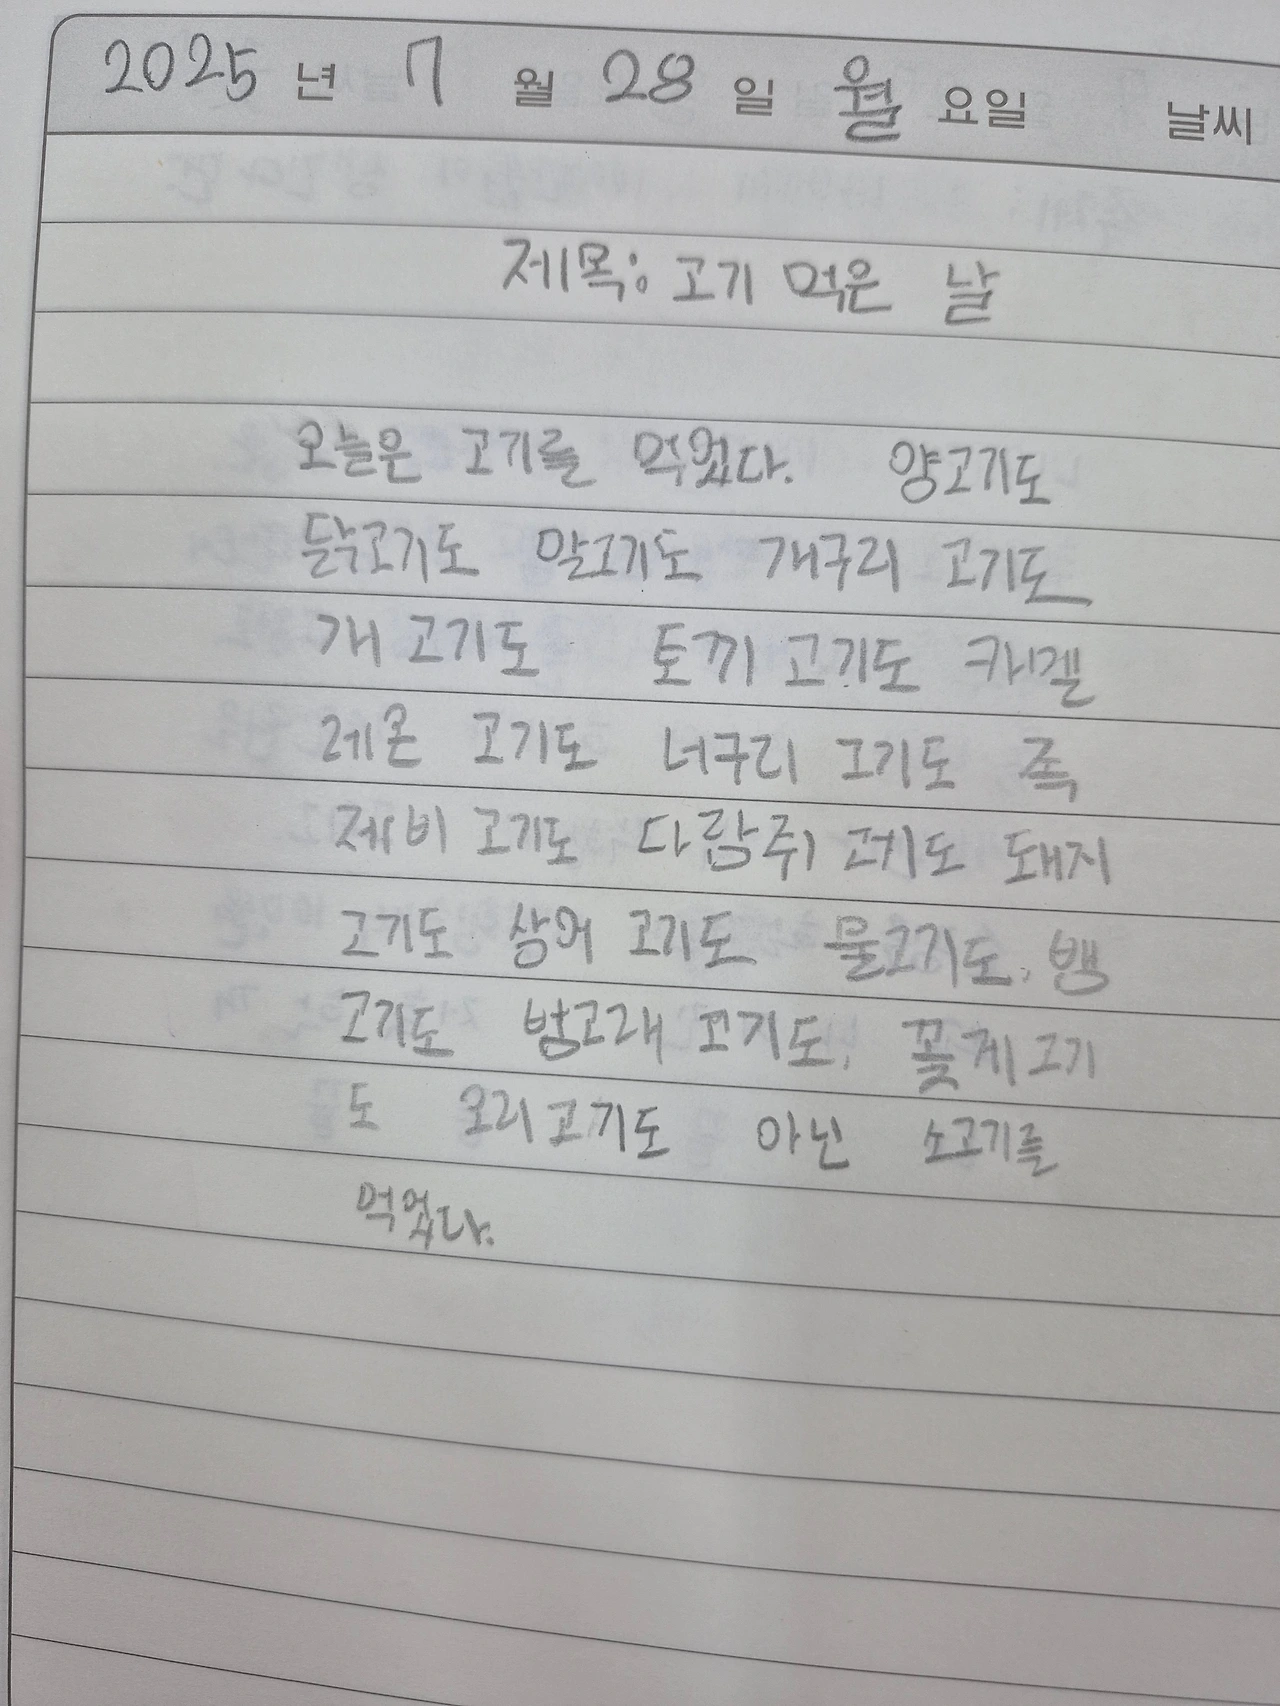 2025 년 7 월 28 일 월 요일 날씨
제목: 고기 먹은 날
오늘은 고기를 먹었다. 양고기도
닭고기도 말고기도 개구리 고기도
개 고기도 토끼 고기도 카멜
레온 고기도 너구리 고기도 족
제비 고기도 다람쥐 고기도 돼지
고기도 상어 고기도 물고기도, 뱀
고기도 범고래 고기도, 꽃게고기
도 오리고기도 아닌 소고기를
먹었다.